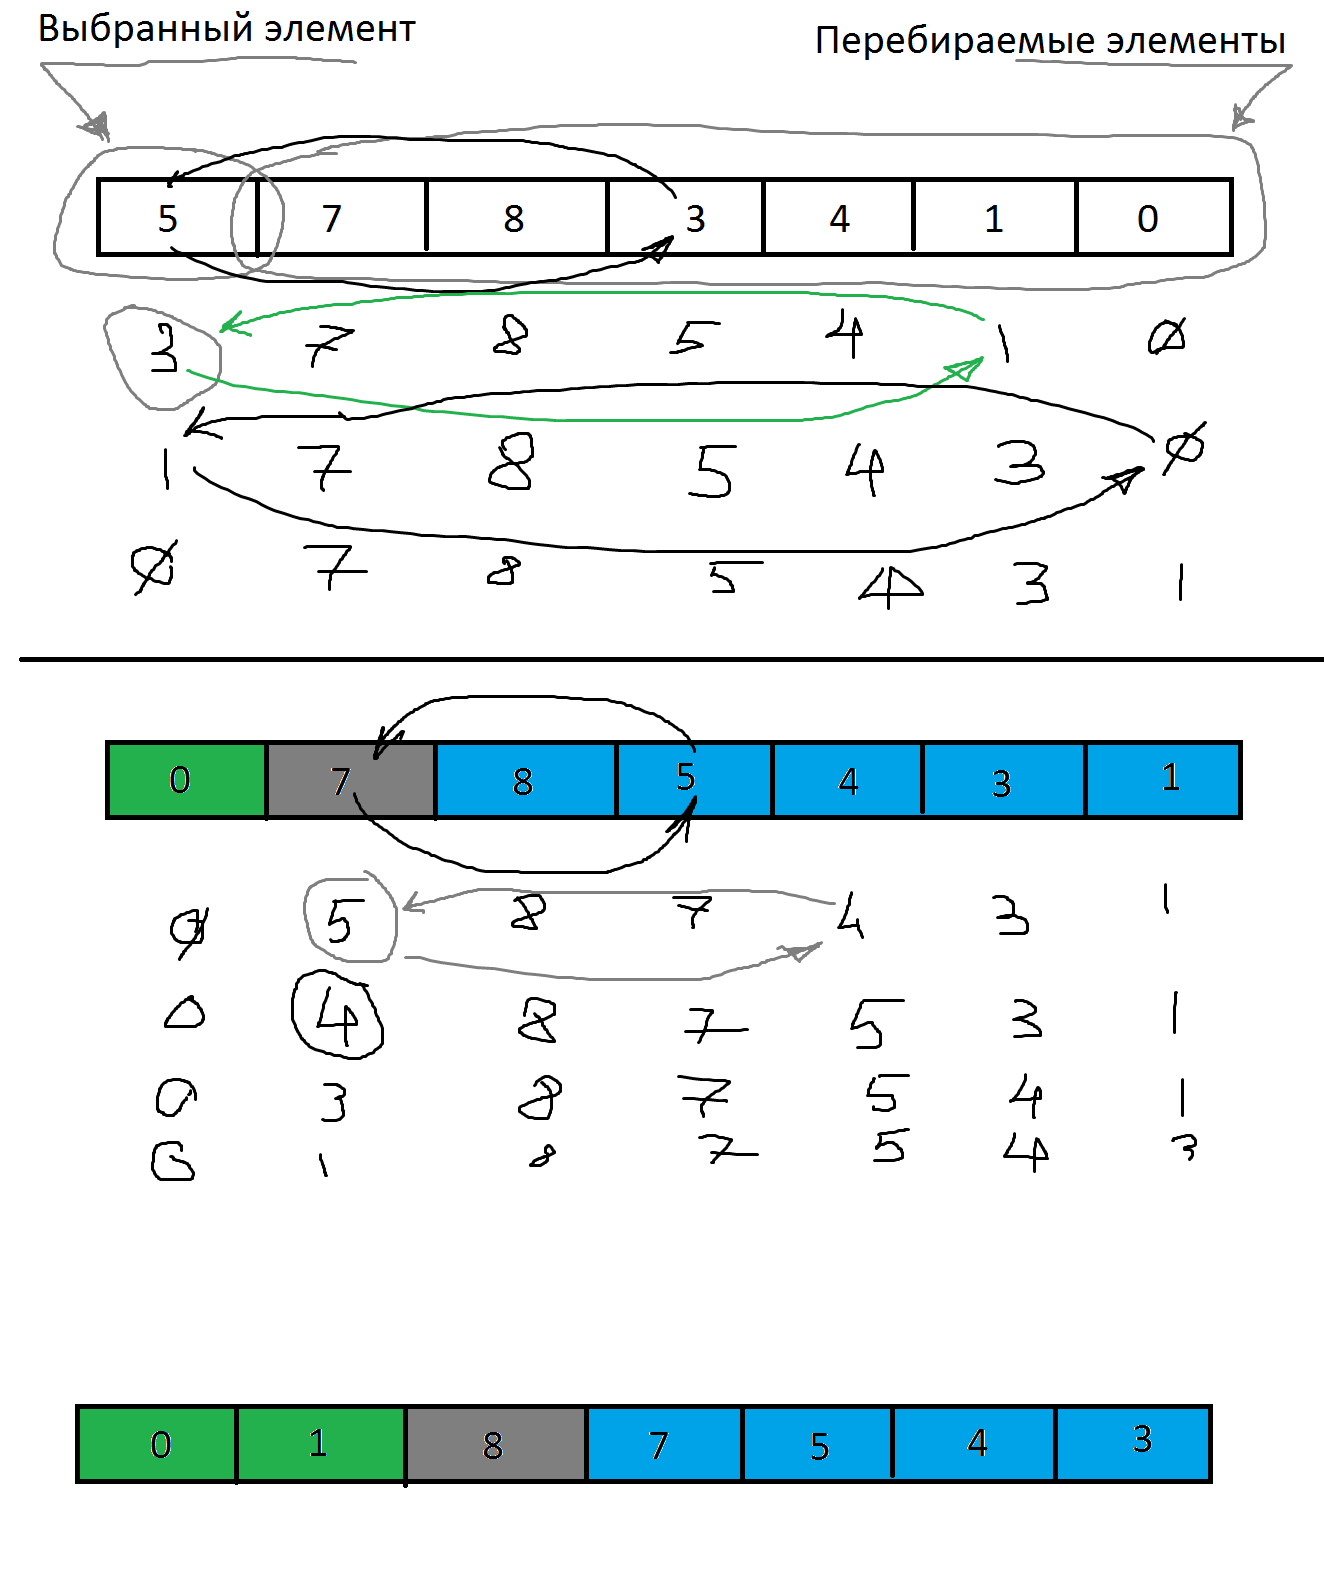 Выбранный элемент
Перебираемые элементы
5 7 8 3 4 1 0
3 7 8 5 4 1 0
1 7 8 5 4 3 0
0 7 8 5 4 3 1
0 7 8 5 4 3 1
0 5 8 7 4 3 1
0 4 8 7 5 3 1
0 3 8 7 5 4 1
0 1 8 7 5 4 3
0 1 8 7 5 4 3